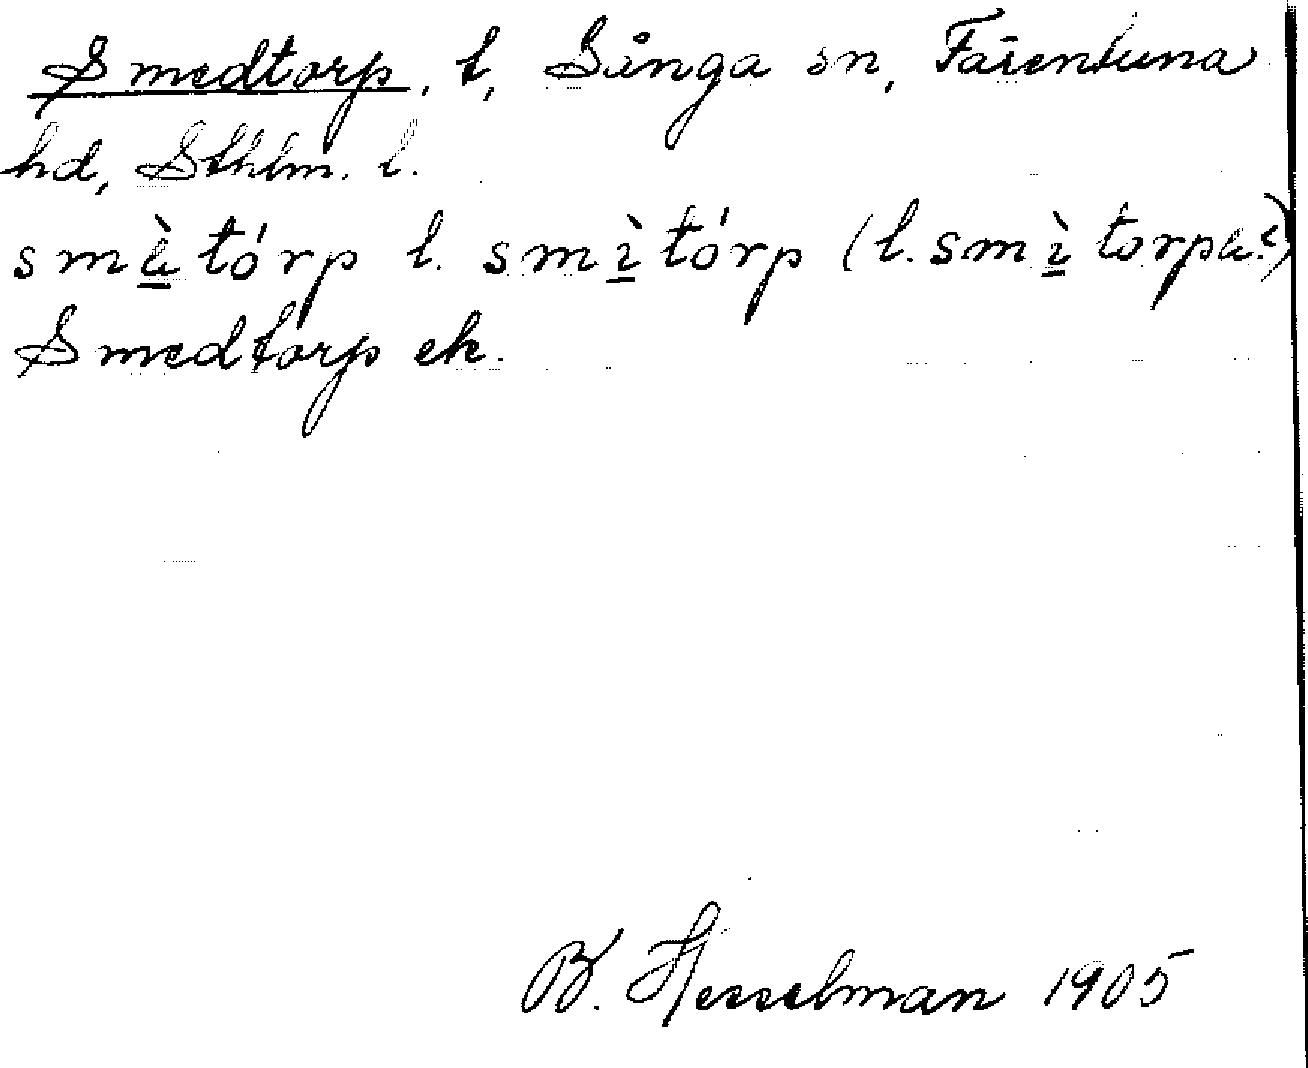 Smedtorp, t, Sånga sn, Färentuna
hd, Sthlm. l.
smè̱tórp l. smì̱tórp (l. smì̱torpa?)
Smedtorp ek.
B. Hesselman 1905